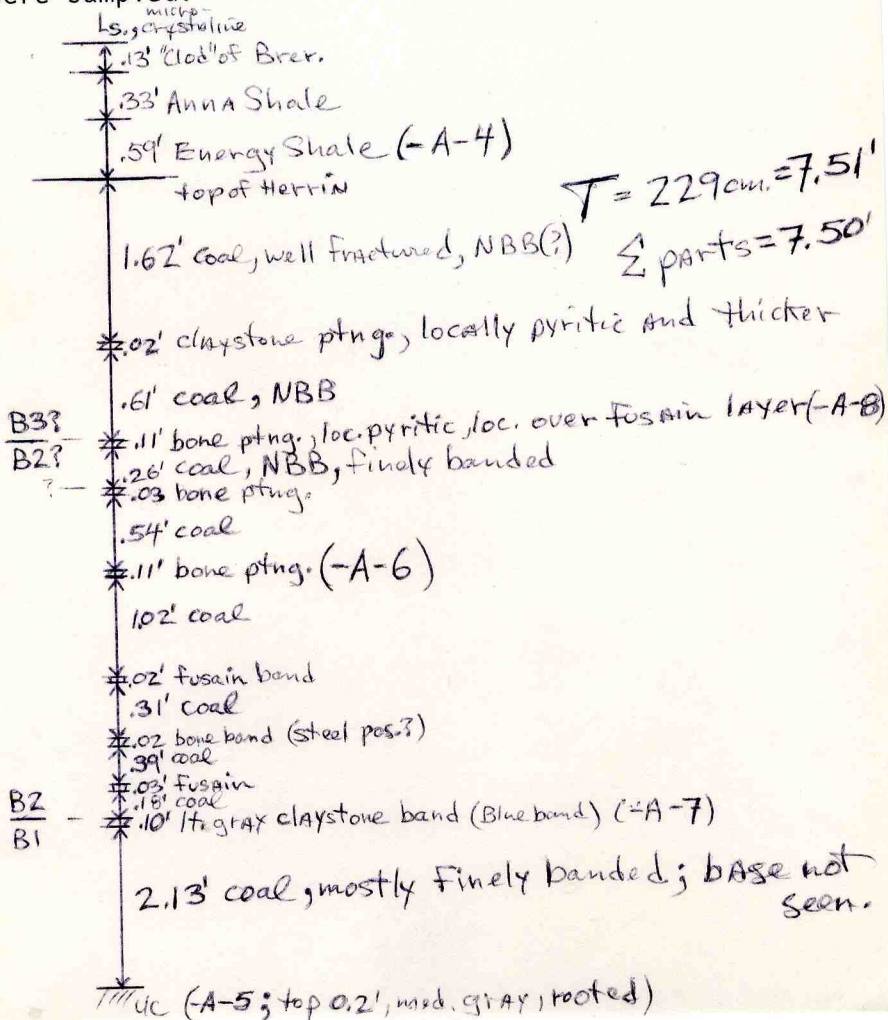 were sampled.
micro-
Ls., crystalline
.13' "Clod" of Brer.
.33' Anna Shale
.59' Energy Shale (-A-4)
top of Herrin
T = 229cm. = 7.51'
Σ parts = 7.50'
1.62' coal, well fractured, NBB(?)
.02' claystone ptng., locally pyritic and thicker
.61' coal, NBB
B3?
B2?
.11' bone ptng., loc. pyritic, loc. over fusain layer (-A-8)
.26' coal, NBB, finely banded
? .03 bone ptng.
.54' coal
.11' bone ptng. (-A-6)
1.02' coal
.02' fusain band
.31' coal
.02 bone band (steel pos.?)
.39' coal
.03' fusain
.18' coal
B2
B1
.10' lt. gray claystone band (Blue band) (-A-7)
2.13' coal, mostly finely banded; base not
seen.
UC (-A-5; top 0.2', med. gray, rooted)